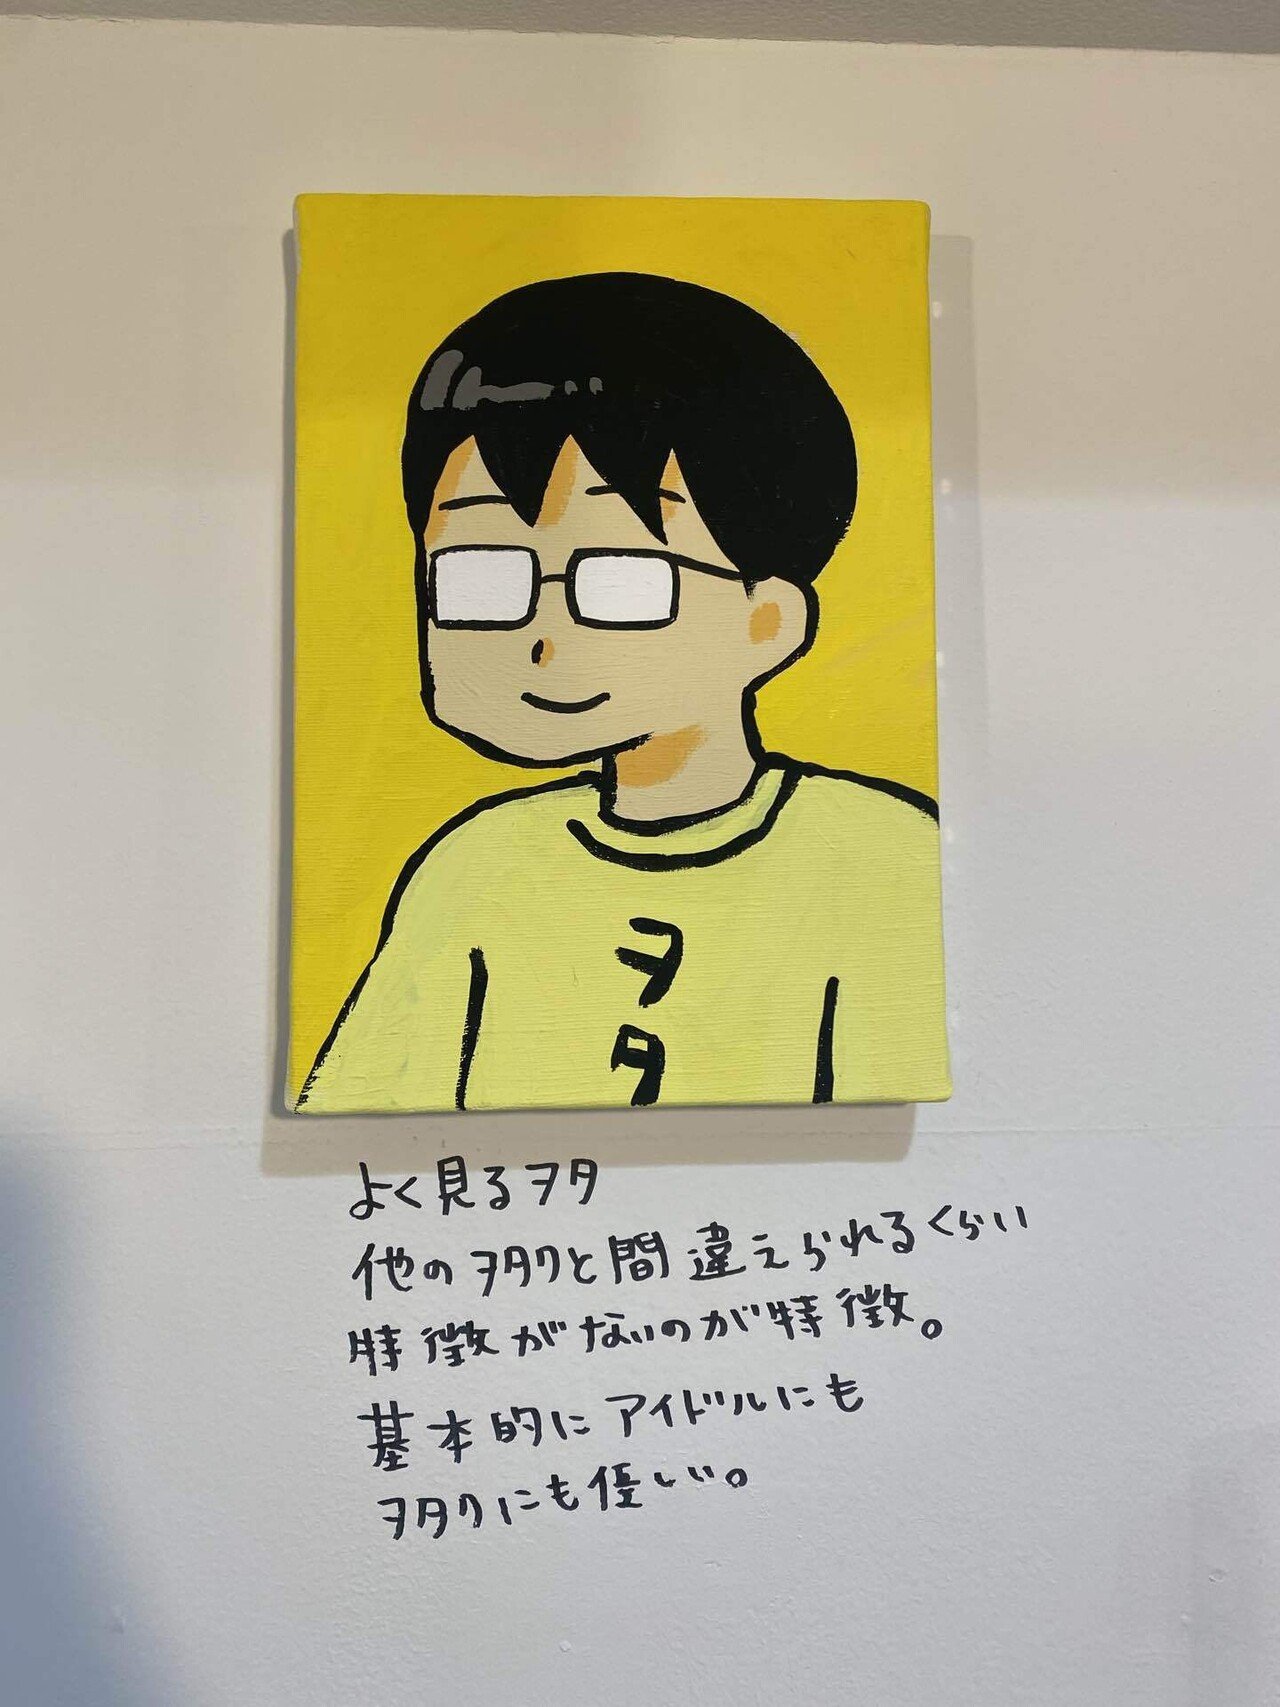 ヲタ
よく見るヲタ
他のヲタクと間違えられるくらい
特徴がないのが特徴。
基本的にアイドルにも
ヲタクにも優しい。